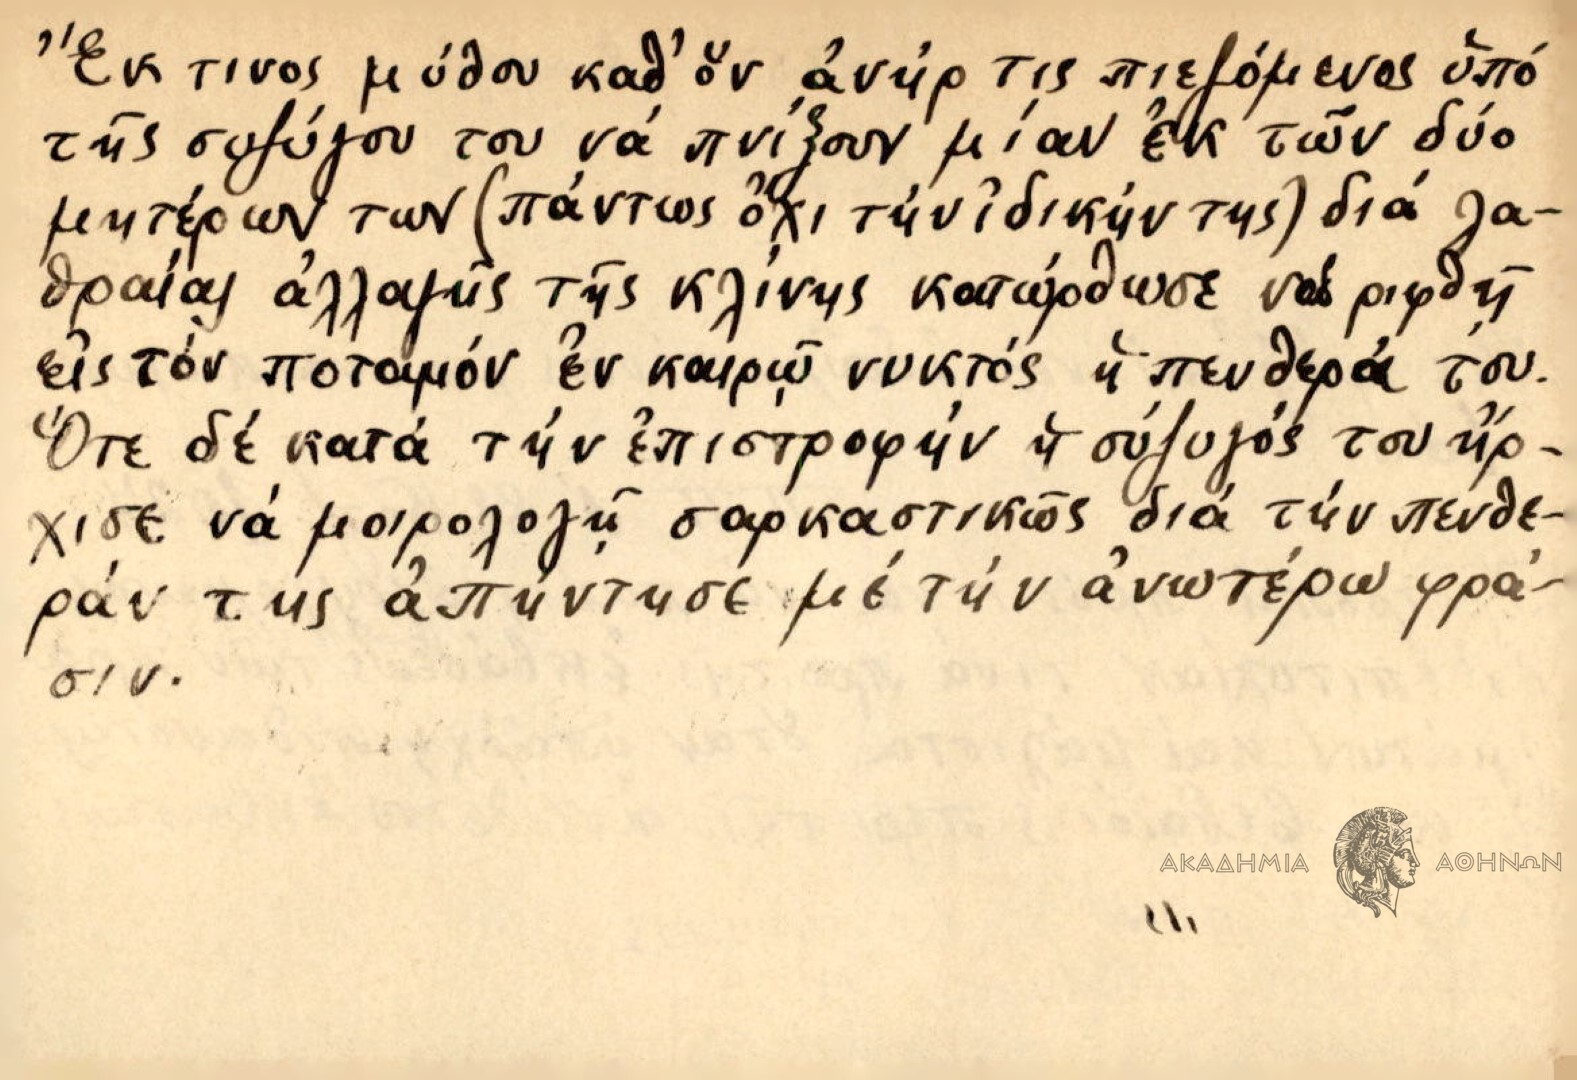 Ἐκ τινος μύθου καθ' ὅν ἀνήρ τις πιεζόμενος ὑπό
τῆς συζύγου του νά πνίξουν μίαν ἐκ τῶν δύο
μητέρων των (πάντως ὄχι τήν ἰδικήν της) διά λα-
θραίας ἀλλαγῆς τῆς κλίνης κατώρθωσε νά ριφθῇ
εἰς τόν ποταμόν ἐν καιρῷ νυκτός ἡ πενθερά του.
Ὅτε δέ κατά τήν ἐπιστροφήν ἡ σύζυγός του ἤρ-
χισε νά μοιρολογῇ σαρκαστικῶς διά τήν πενθε-
ράν της ἀπήντησε μέ τήν ἀνωτέρω φρά-
σιν.
ΑΚΑΔΗΜΙΑ ΑΘΗΝΩΝ